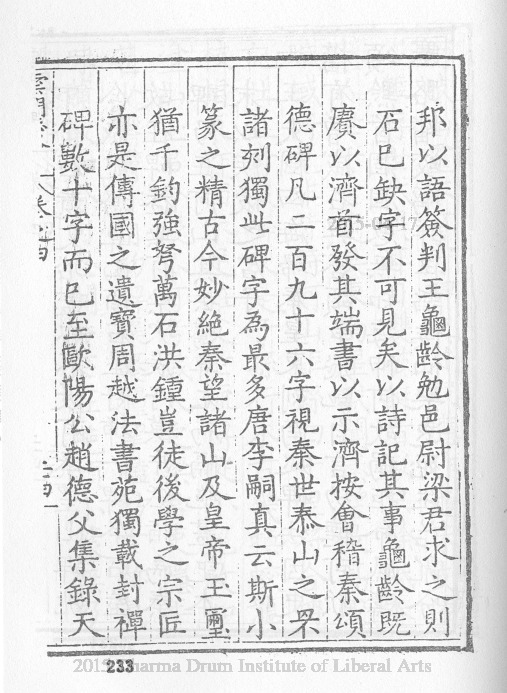 邦以語簽判王龜齡勉邑尉梁君求之則
石已缺字不可見矣以詩記其事龜齡既
賡以濟首發其端書以示濟按會稽秦頌
德碑凡二百九十六字視秦世泰山之罘
諸刻獨此碑字為最多唐李嗣真云斯小
篆之精古今妙絶秦望諸山及皇帝玉璽
猶千鈞強弩萬石洪鍾豈徒後學之宗匠
亦是傳國之遺寶周越法書苑獨載封禪
碑數十字而已至歐陽公趙德父集錄天
卷之四
233
2015 Dharma Drum Institute of Liberal Arts